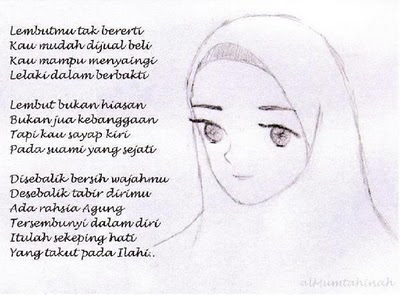 Lembutmu tak bererti
Kau mudah dijual beli
Kau mampu menyaingi
Lelaki dalam berbakti
Lembut bukan hiasan
Bukan jua kebanggaan
Tapi kau sayap kiri
Pada suami yang sejati
Disebalik bersih wajahmu
Desebalik tabir dirimu
Ada rahsia Agung
Tersembunyi dalam diri
Itulah sekeping hati
Yang takut pada Ilahi..
alMumtahinah